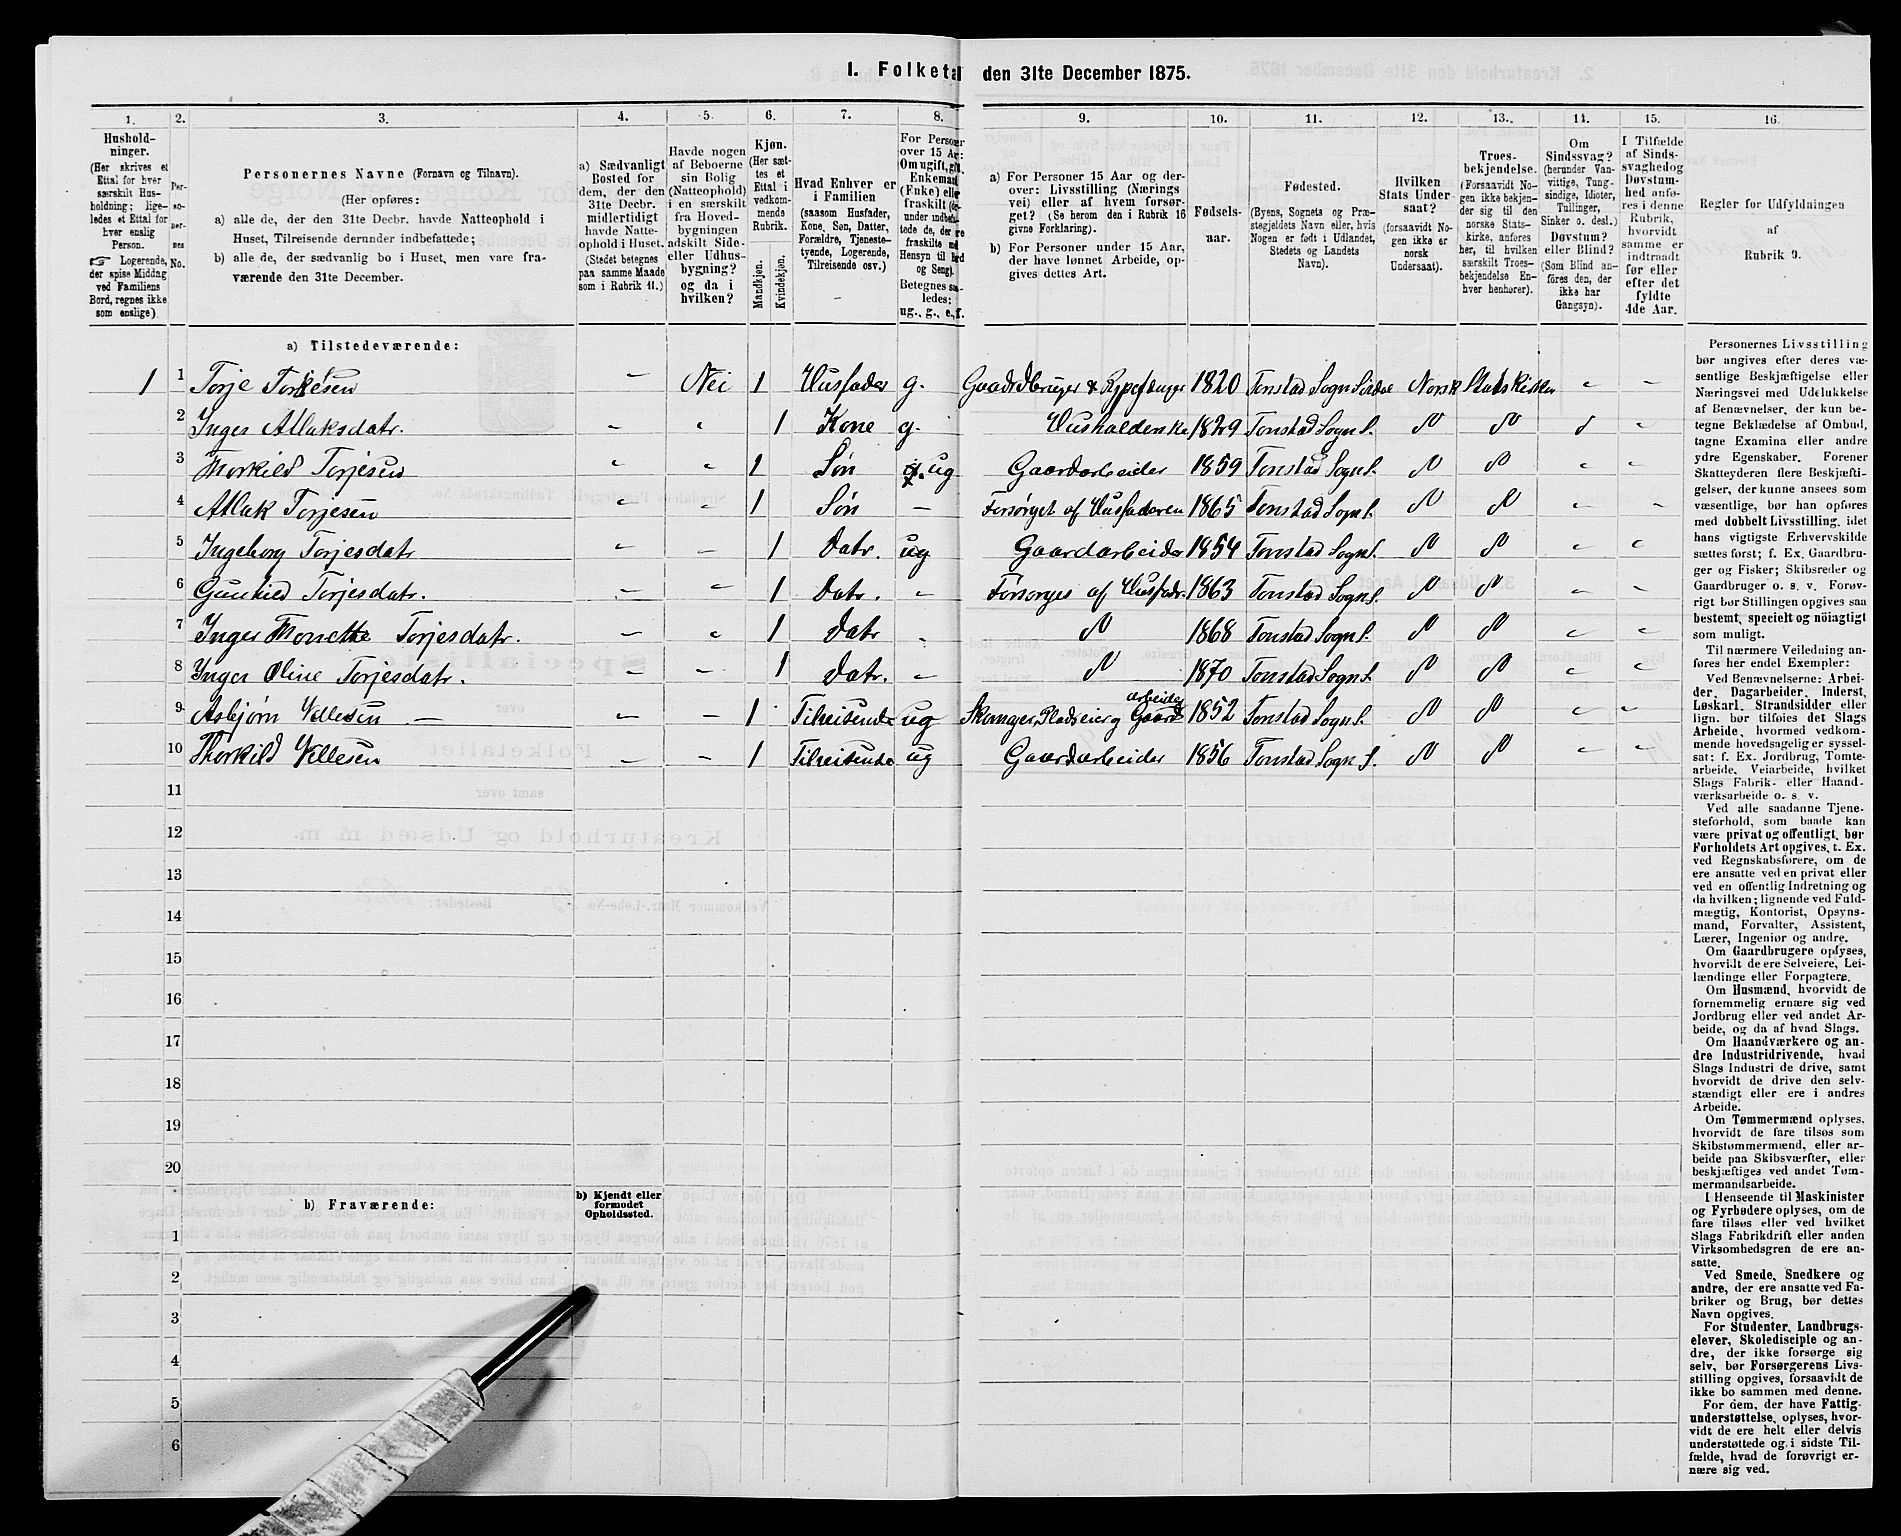 1. Folketal den 31te December 1875.
1. 2. 3. 4. 5. 6. 7. 8. 9. 10. 11. 12. 13. 14. 15. 16.
Hushold-
ninger.
(Her skrives et
Ettal for hver
særskilt Hus-
holdning; lige-
ledes et Ettal for
hver enslig
Person.
☞ Logerende,
der spise Middag
ved Familiens
Bord, regnes ikke
som enslige)
Per-
so-
ner-
nes
No.
Personernes Navne (Fornavn og Tilnavn).
(Her opføres:
a) alle de, der den 31te Decbr. havde Natteophold i
Huset, Tilreisende derunder indbefattede;
b) alle de, der sædvanlig bo i Huset, men vare fra-
værende den 31te December.
a) Sædvanligt
Bosted for
dem, der den
31te Decbr.
midlertidigt
havde Natte-
ophold i Huset.
(Stedet betegnes
paa samme Maade
som i Rubrik 11.)
Havde nogen
af Beboerne
sin Bolig
(Natteophold)
i en særskilt
fra Hoved-
bygningen
adskilt Side-
eller Udhus-
bygning?
og da i
hvilken?
Kjøn.
(Her sæt-
tes et
Ettal i
vedkom-
mende
Rubrik.
Mandkjøn.
Kvindekjøn.
Hvad Enhver er
i Familien
(saasom Husfader,
Kone, Søn, Datter,
Forældre, Tjeneste-
tyende, Logerende,
Tilreisende osv.)
For Personer
over 15 Aar:
Om ugift, gift,
Enkemand
(Enke) eller
fraskilt
Betegnes saa-
ledes:
ug., g., e., f.
a) For Personer 15 Aar og der-
over: Livsstilling (Nærings
vei) eller af hvem forsør-
get? (Se herom den i Rubrik 16
givne Forklaring).
b) For Personer under 15 Aar,
der have lønnet Arbeide, op-
gives dettes Art.
Fødsels-
aar.
Fødested.
(Byens, Sognets og Præ-
stegjeldets Navn eller, hvis
Nogen er født i Udlandet,
Stedets og Landets
Navn).
Hvilken
Stats Under
saat?
(forsaavidt No-
gen ikke er
norsk
Undersaat).
Troes-
bekjendelse.
(Forsaavidt No-
gen ikke bekjen-
der sig til den
norske Stats-
kirke, anføres
her, til hvilken
særskilt Troes-
bekjendelse En-
hver henhører).
Om
Sindssvag?
(herunder Van-
vittige, Tung-
sindige, Idioter,
Tullinger,
Sinker o. desl.)
Døvstum?
eller Blind?
(Som Blind an-
føres den, der
ikke har
Gangsyn).
I Tilfælde
af Sinds-
svaghed og
Døvstum-
hed anfø-
res i denne
Rubrik,
hvorvidt
samme er
indtraadt
før eller
efter det
fyldte
4de Aar.
Regler for Udfyldningen
af
Rubrik 9.
a) Tilstedeværende:
1 1 Torje Torkelsen — Nei 1 Husfader g. Gaardbruger & Rypefanger 1820 Tonstad Sogn Sirdal Norsk Statskirken
2 Inger Atlaksdatr. 1 Kone g. Husholderske 1829 Tonstad Sogn S.
3 Thorkild Torjesen 1 Søn ug Gaardarbeider 1859 Tonstad Sogn S.
4 Atlak Torjesen 1 Søn — Forsørget af Husfaderen 1865 Tonstad Sogn S.
5 Ingeborg Torjesdatr 1 Datr. ug Gaardarbeider 1854 Tonstad Sogn S.
6 Gunhild Torjesdatr. 1 Datr. - Forsørges af Husfadr. 1863 Tonstad Sogn S.
7 Inger Thonette Torjesdatr. 1 Datr - 1868 Tonstad Sogn S.
8 Inger Oline Torjesdatr. 1 Datr. - 1870 Tonstad Sogn S.
9 Asbjørn Villesen — 1 Tilreisende ug Skomager, Pladseier og Gaardarbeider 1852 Tonstad Sogn S.
10 Thorkild Villesen 1 Tilreisende ug Gaardarbeider 1856 Tonstad Sogn S.
11
12
13
14
15
16
17
18
19
20
b) Fraværende:
b) Kjendt eller
formodet
Opholdssted.
1
2
3
4
5
6
Personernes Livsstilling
bør angives efter deres væ-
sentlige Beskjæftigelse eller
Næringsvei med Udelukkelse
af Benævnelser, der kun be-
tegne Beklædelse af Ombud,
tagne Examina eller andre
ydre Egenskaber. Forener
Skatteyderen flere Beskjæfti-
gelser, der kunne ansees som
væsentlige, bør han opføres
med dobbelt Livsstilling, idet
hans vigtigste Erhvervskilde
sættes først; f. Ex. Gaardbru-
ger og Fisker; Skibsreder og
Gaardbruger o. s. v. Forøv-
rigt bør Stillingen opgives saa
bestemt, specielt og nöiagtigt
som muligt.
Til nærmere Veiledning an-
føres her endel Exempler:
Ved Benævnelserne: Arbei-
der, Dagarbeider, Inderst,
Løskarl, Strandsidder eller
lign. bør tilføies det Slags
Arbeide, hvormed vedkom-
mende hovedsagelig er syssel-
sat; f. Ex. Jordbrug, Tomte-
arbeide, Veiarbeide, hvilket
Slags Fabrik- eller Haand-
værksarbeide o. s. v.
Ved alle saadanne Tjene-
steforhold, som baade kan
være privat og offentligt, bør
Forholdets Art opgives, t. Ex.
ved Regnskabsførere, om de
ere ansatte ved en privat eller
ved en offentlig Indretning og
da hvilken; lignende ved Fuld-
mægtig, Kontorist, Opsyns-
mand, Forvalter, Assistent,
Lærer, Ingeniør og andre.
Om Gaardbrugere oplyses,
hvorvidt de ere Selveiere, Lei-
lændinge eller Forpagtere.
Om Husmænd, hvorvidt de
fornemmelig ernære sig ved
Jordbrug eller ved andet Ar-
beide, og da af hvad Slags.
Om Haandværkere og an-
dre Industridrivende, hvad
Slags Industri de drive, samt
hvorvidt de drive den selv-
stændigt eller ere i andres
Arbeide.
Om Tømmermænd oplyses,
hvorvidt de fare tilsøs som
Skibstømmermænd, eller ar-
beide paa Skibsværfter, eller
beskjæftiges ved andet Tøm-
mermandsarbeide.
I Henseende til Maskinister
og Fyrbødere oplyses, om de
fare tilsøs eller ved hvilket
Slags Fabrikdrift eller anden
Virksomhedsgren de ere an-
satte.
Ved Smede, Snedkere og
andre, der ere ansatte ved Fa-
briker og Brug, bør dettes
Navn opgives.
For Studenter, Landbrugs-
elever, Skoledisciple og an-
dre, der ikke forsørge sig
selv, bør Forsørgerens Livs-
stilling opgives, forsaavidt de
ikke bo sammen med denne.
For dem, der have Fattig-
understøttelse, oplyses, hvor-
vidt de ere helt eller delvis
understøttede og i sidste Til-
fælde, hvad de forøvrigt er-
nære sig ved.